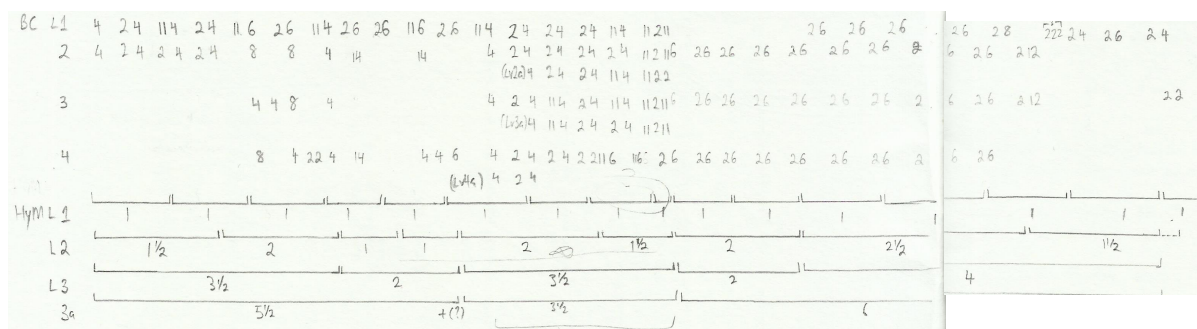 BC L1 4 24 114 24 116 26 114 26 26 116 26 114 24 24 24 114 11211 26 26 26 26 28 24 26 24
2 4 24 24 24 8 8 4 14 14 4 24 24 24 24 11211 6 26 26 26 26 26 26 2 6 26 212
(Lv2a) 4 24 24 114 1122
3 4 4 8 4 4 24 114 24 114 11211 6 26 26 26 26 26 26 2 6 26 212 22
(Lv3a) 4 114 24 24 11211
4 8 4 22 4 14 4 4 6 4 24 24 22116 116 26 26 26 26 26 26 2 6 26
(Lv4a) 4 24
HyM L1 1 1 1 1 1 1 1 1 1 1 1 1 1 1 1 1
L2 1½ 2 1 1 2 1½ 2 2½ 1½
L3 3½ 2 3½ 2 4
3a 5½ +(?) 3½ 6